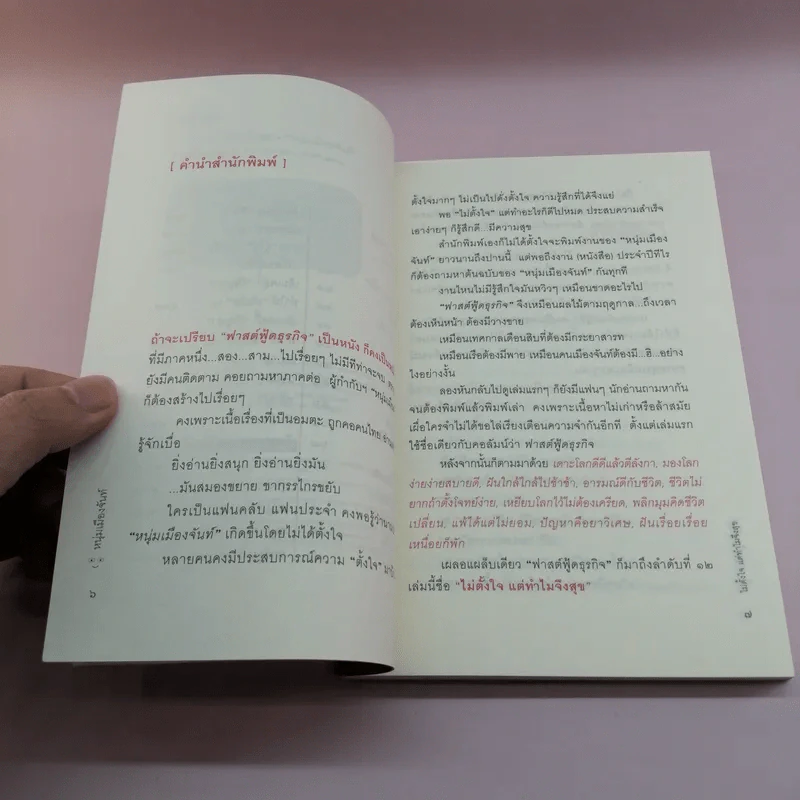 [ คำนำสำนักพิมพ์ ]
ถ้าจะเปรียบ "ฟาสต์ฟู้ดธุรกิจ" เป็นหนัง ก็คงเป็น
ที่มีภาคหนึ่ง...สอง...สาม...ไปเรื่อยๆ ไม่มีทีท่าจะจบ
ยังมีคนติดตาม คอยถามหาภาคต่อ ผู้กำกับฯ "หนุ่มเมือง
ก็ต้องสร้างไปเรื่อยๆ
คงเพราะเนื้อเรื่องที่เป็นอมตะ ถูกคอคนไทย
รู้จักเบื่อ
ยิ่งอ่านยิ่งสนุก ยิ่งอ่านยิ่งมัน
...มันสมองขยาย ขากรรไกรขยับ
ใครเป็นแฟนคลับ แฟนประจำ คงพอรู้ว่า
"หนุ่มเมืองจันท์" เกิดขึ้นโดยไม่ได้ตั้งใจ
หลายคนคงมีประสบการณ์ความ "ตั้งใจ"
หนุ่มเมืองจันท์
๖
ตั้งใจมากๆ ไม่เป็นไปดั่งตั้งใจ ความรู้สึกที่ได้จึงแย่
พอ "ไม่ตั้งใจ" แต่ทำอะไรก็ดีไปหมด ประสบความสำเร็จ
เอาง่ายๆ ก็รู้สึกดี...มีความสุข
สำนักพิมพ์เองก็ไม่ได้ตั้งใจจะพิมพ์งานของ "หนุ่มเมือง
จันท์" ยาวนานถึงปานนี้ แต่พอถึงงาน (หนังสือ) ประจำปีทีไร
ก็ต้องถามหาต้นฉบับของ "หนุ่มเมืองจันท์" กันทุกที
งานไหนไม่มีรู้สึกใจมันหวิวๆ เหมือนขาดอะไรไป
"ฟาสต์ฟู้ดธุรกิจ" จึงเหมือนผลไม้ตามฤดูกาล...ถึงเวลา
ต้องเห็นหน้า ต้องมีวางขาย
เหมือนเทศกาลเดือนสิบที่ต้องมีกระยาสารท
เหมือนเรือต้องมีพาย เหมือนคนเมืองจันท์ต้องมี...ฮิ...อย่าง
ไงอย่างงั้น
ลองหันกลับไปดูเล่มแรกๆ ก็ยังมีแฟนๆ นักอ่านถามหากัน
จนต้องพิมพ์แล้วพิมพ์เล่า คงเพราะเนื้อหาไม่เก่าหรือล้าสมัย
เผื่อใครจำไม่ได้ขอไล่เรียงเตือนความจำกันอีกที ตั้งแต่เล่มแรก
ใช้ชื่อเดียวกับคอลัมน์ว่า ฟาสต์ฟู้ดธุรกิจ
หลังจากนั้นก็ตามมาด้วย เคาะโลกดีดีแล้วตีลังกา, มองโลก
ง่ายง่ายสบายดี, ฝันใกล้ใกล้ไปช้าช้า, อารมณ์ดีกับชีวิต, ชีวิตไม่
ยากถ้าตั้งโจทย์ง่าย, เหยียบโลกไว้ไม่ต้องเครียด, พลิกมุมคิดชีวิต
เปลี่ยน, แพ้ได้แต่ไม่ยอม, ปัญหาคือยาวิเศษ, ฝันเรื่อยเรื่อย
เหนื่อยก็พัก
เผลอแผล็บเดียว "ฟาสต์ฟู้ดธุรกิจ" ก็มาถึงลำดับที่ ๑๒
เล่มนี้ชื่อ "ไม่ตั้งใจ แต่ทำไมจึงสุข"
ไม่ตั้งใจ แต่ทำไมจึงสุข
๗